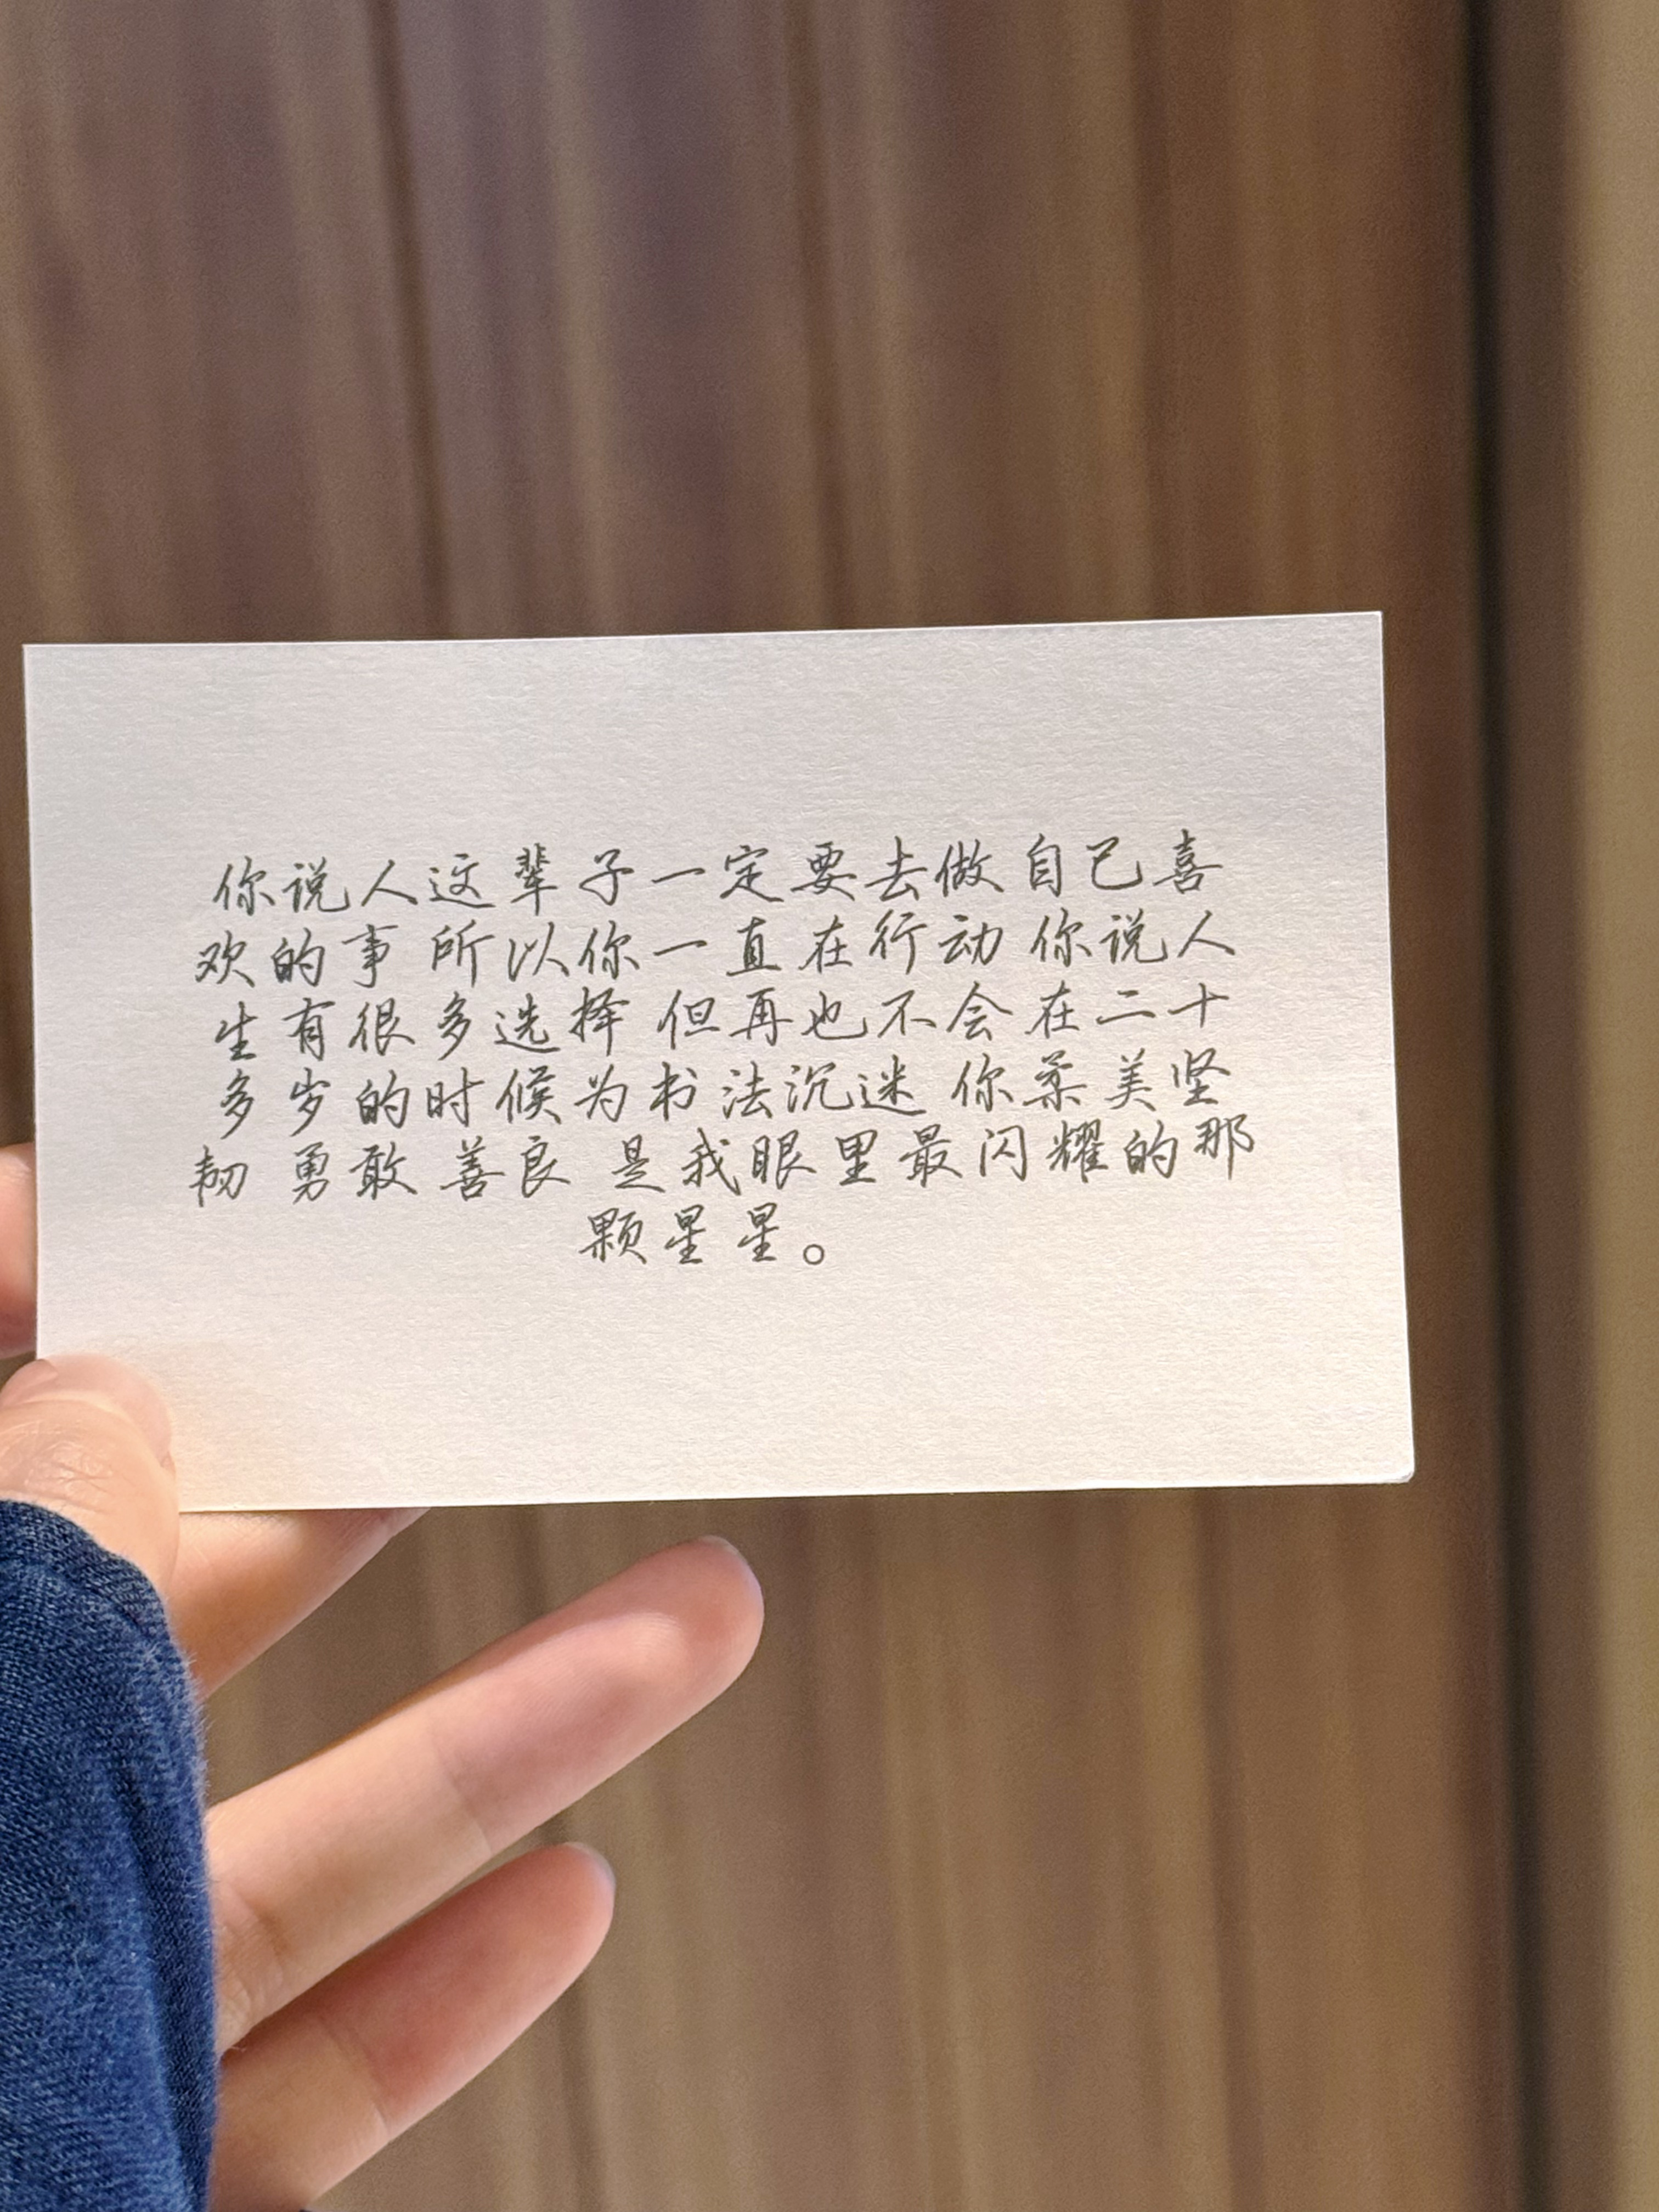 你说人这辈子一定要去做自己喜
欢的事 所以你一直在行动 你说人
生有很多选择 但再也不会在二十
多岁的时候为书法沉迷 你柔美坚
韧 勇敢 善良 是我眼里最闪耀的那
颗星星。